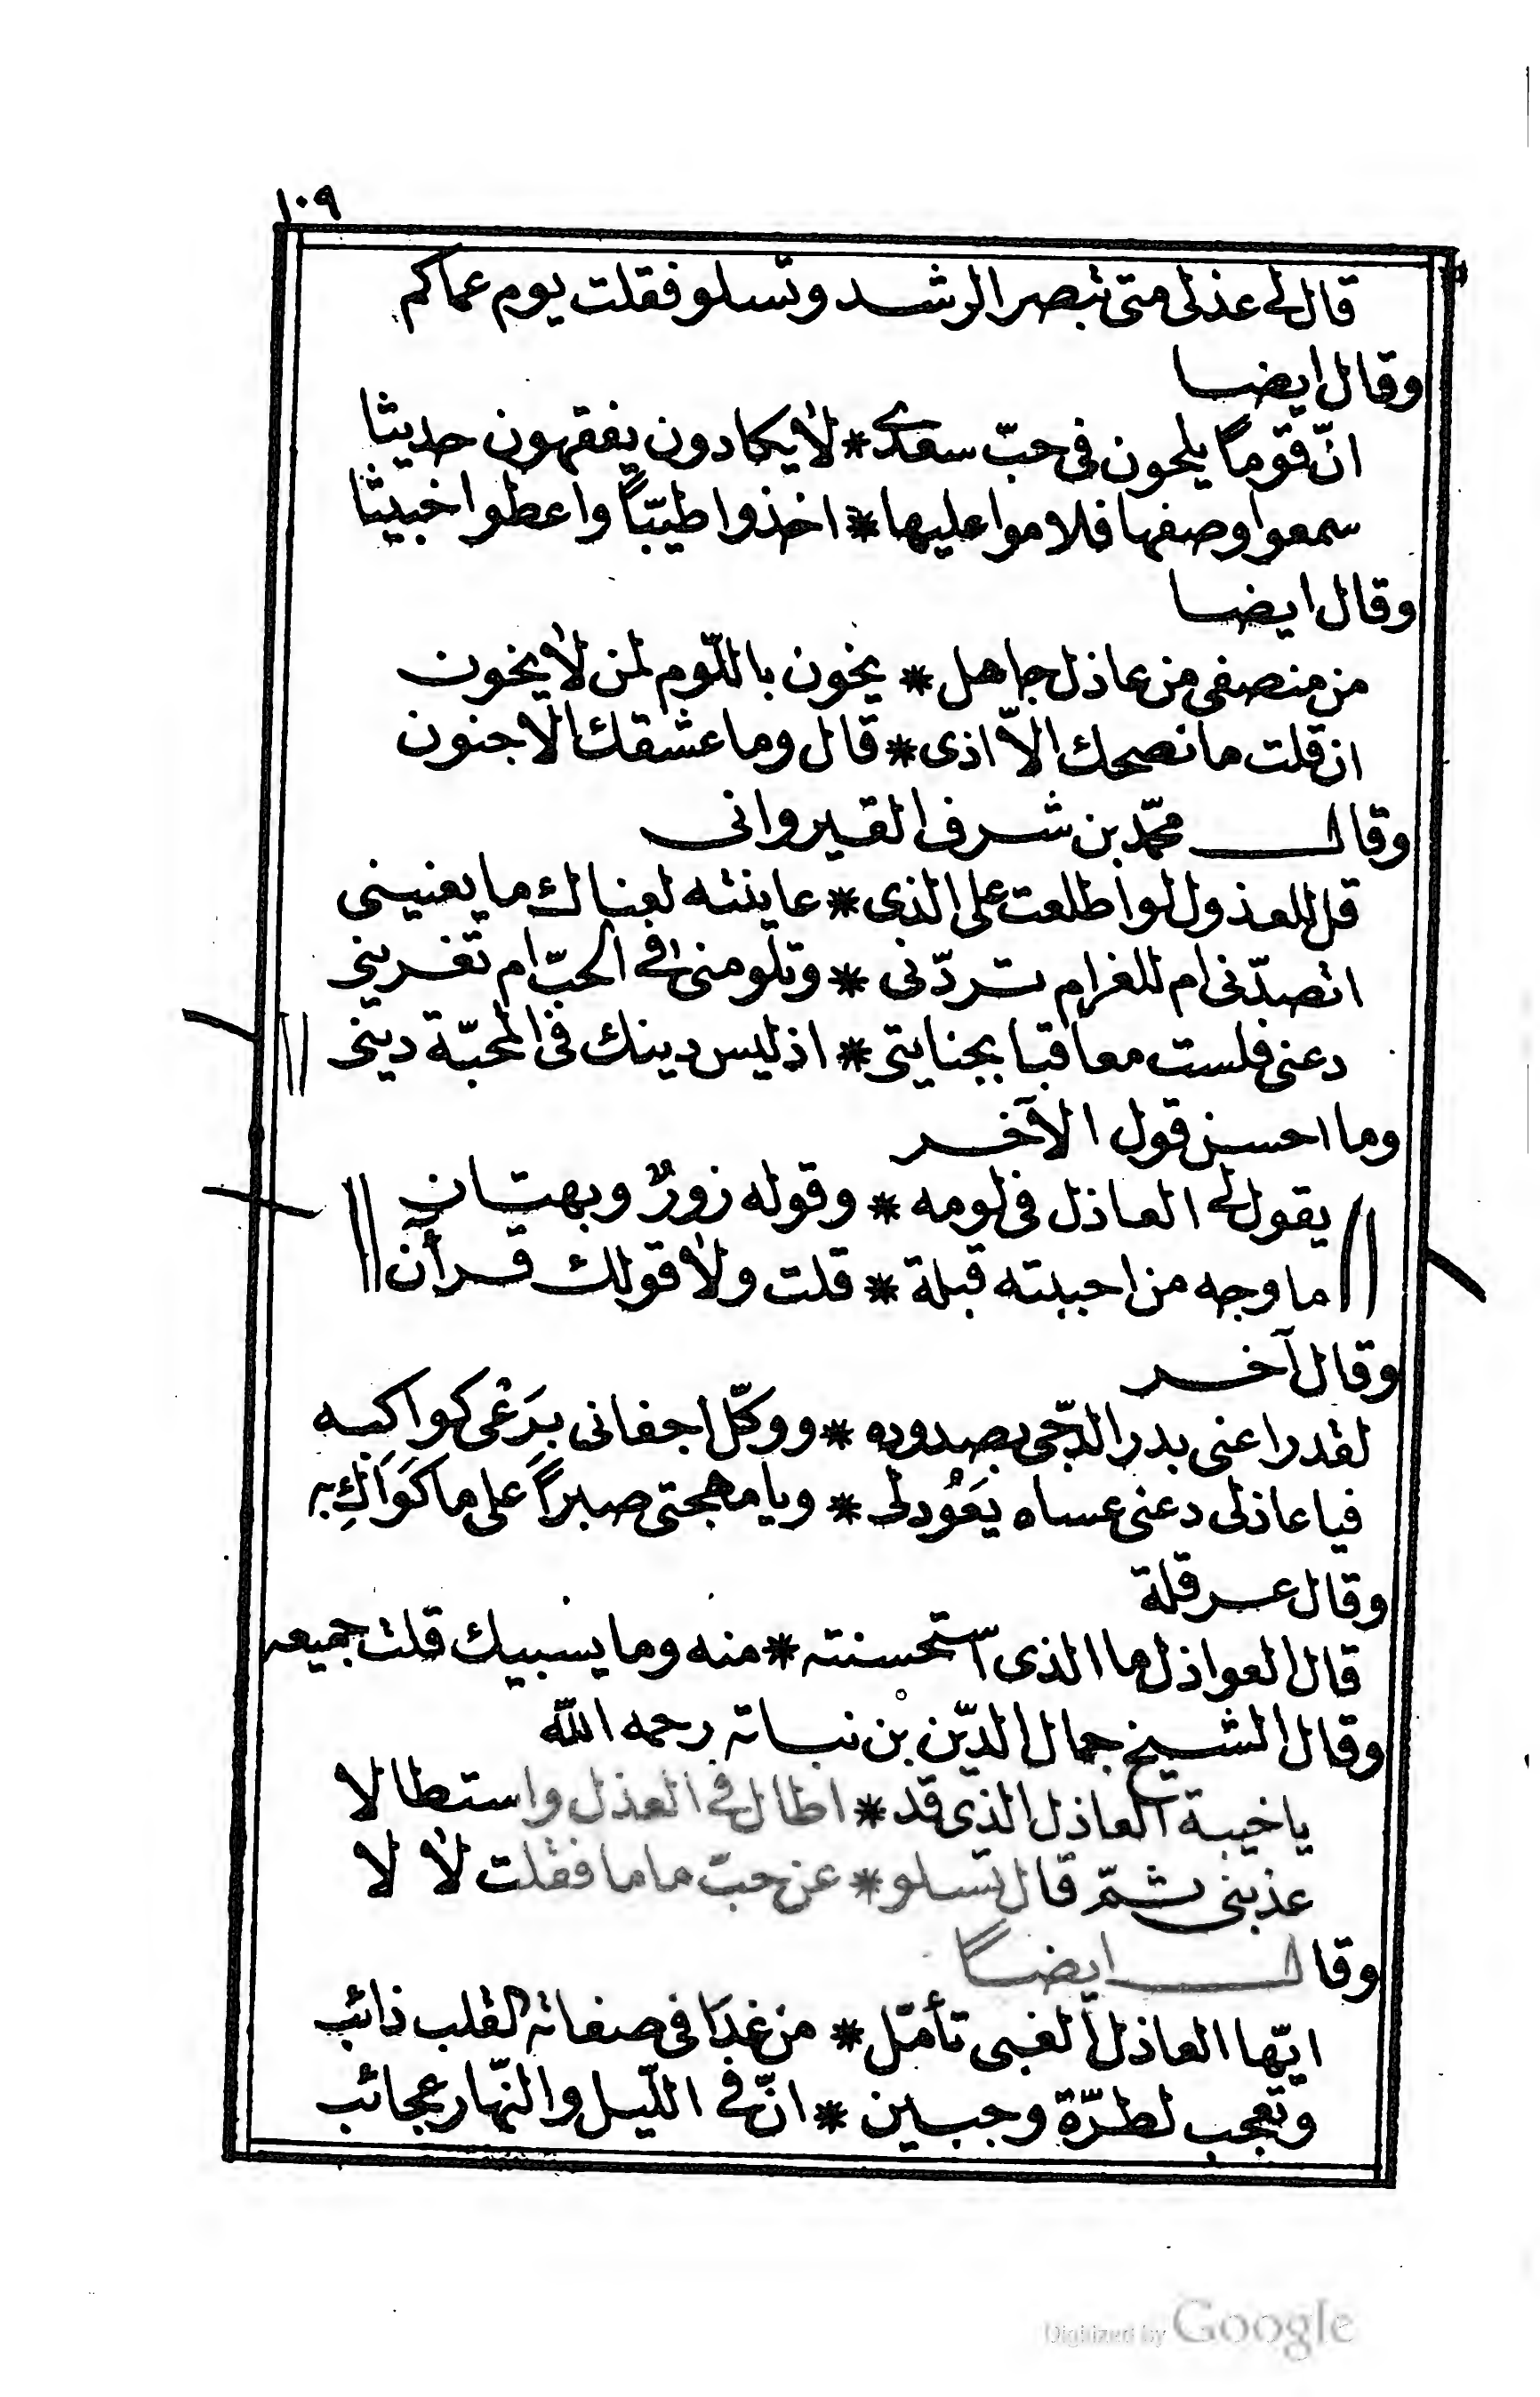 ١٠٩
قال لى عذلى متى تبصر الرشد وتسلو فقلت يوم عماكم
وقال ايضا
انّ قوماً يلحون فى حبّ سعدى * لا يكادون يفقهون حديثا
سمعوا وصفها فلاموا عليها * اخذوا طيّباً واعطوا خبيثا
وقال ايضا
من منصفى من عاذل جاهل * يخون باللّوم لمن لا يخون
ان قلت ما نصحك الاّ اذى * قال وما عشقك الا جنون
وقال محمّد بن شرف القيروانى
قل للعذول لو اطلعت على الذى * عاينته لعناك ما يعنينى
اتصدّنى ام للغرام تردّنى * وتلومنى فى الحبّ ام تغرينى
دعنى فلست معاقبا بجنايتى * اذ ليس دينك فى المحبّة دينى
وما احسن قول الآخر
يقول لى العاذل فى لومه * وقوله زورٌ وبهتان
ما وجه من احببته قبلة * قلت ولا قولك قرآن
وقال آخر
لقد راعنى بدر الدّجى بصدوده * ووكّل اجفانى بِرَعْى كواكبه
فيا عاذلى دعنى عساه يَعُود لى * ويا مهجتى صبراً على ما كَوَاكِ به
وقال عرقلة
قال العواذل ما الذى استحسنته * منه وما يسبيك قلت جميعه
وقال الشيخ جمال الدّين بن نباته رحمه اللّٰه
يا خيبة العاذل الذى قد * اطال فى العذل واستطالا
عذبنى ثمّ قال تسلو * عن حبّ ماما فقلت لا لا
وقال ايضاً
ايّها العاذل الغبى تأمّل * من غدَا فى صفاته القلب ذائب
وتعجب لطرّة وجبين * انّ فى اللّيل والنّهار عجائب
Digitized by Google